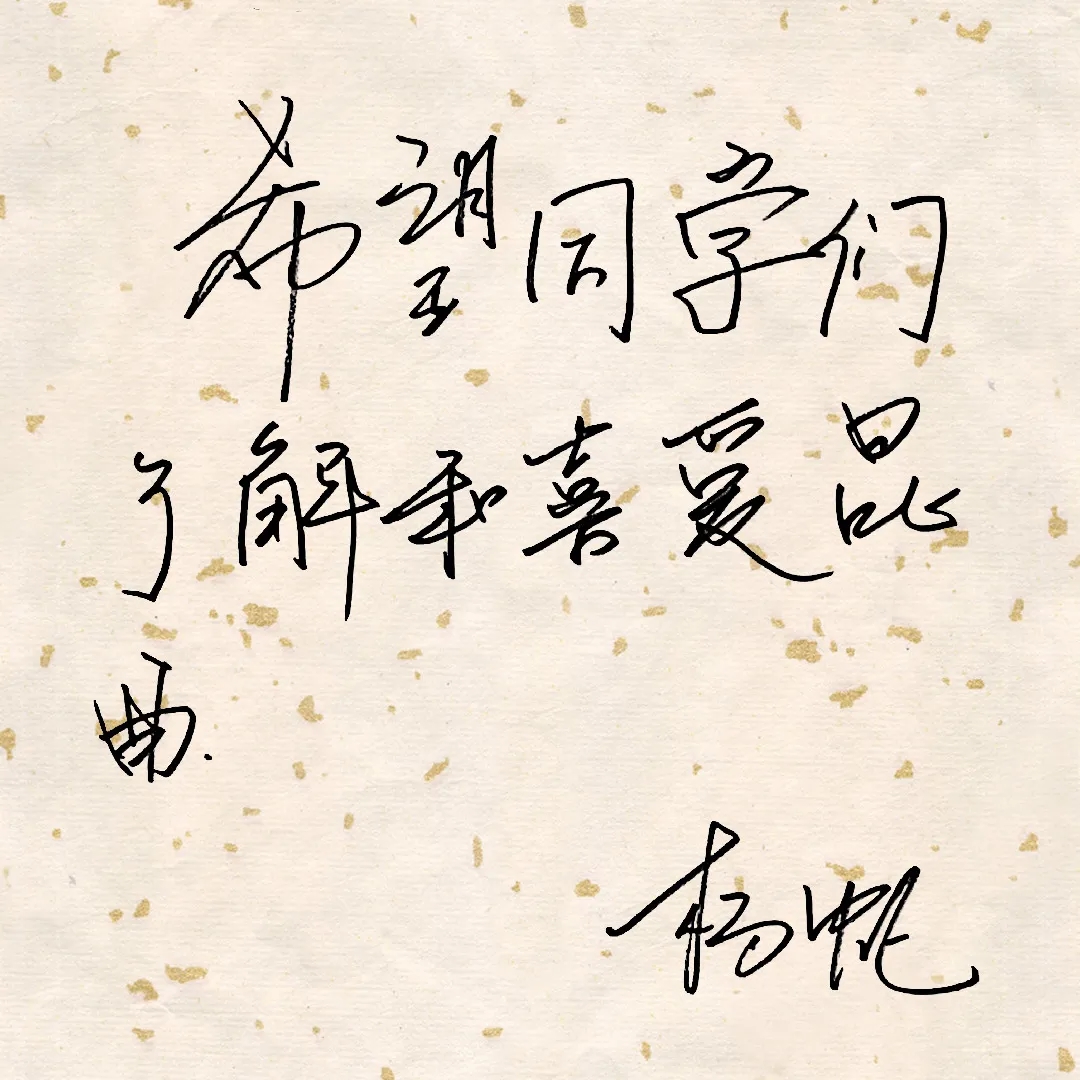 希望同学们
了解和喜爱昆
曲.
杨帆